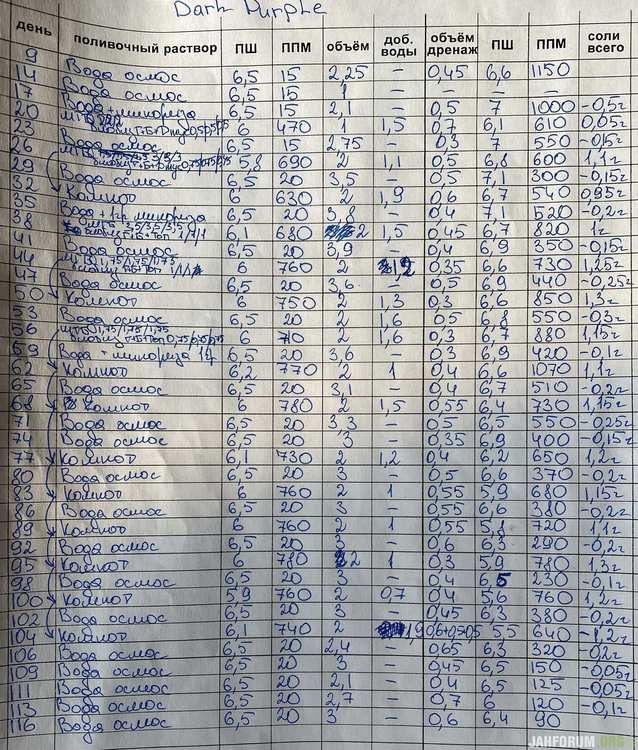 Dark Purple
день поливочный раствор ПШ ППМ объём доб. воды объём дренаж ПШ ППМ соли всего
9
14 Вода осмос 6,5 15 2,25 – 0,45 6,6 1150
17 Вода осмос 6,5 15 1 – – – –
20 Вода + микориза 6,5 15 2,1 – 0,5 7 1000 -0,5г
23 6 470 1 1,5 0,7 6,1 610 0,05г
26 Вода осмос 6,5 15 2,75 – 0,3 7 550 -0,15г
29 5,8 690 2 1,1 0,5 6,8 600 1,1г
32 Вода осмос 6,5 20 3,5 – 0,5 7,1 300 -0,15г
35 Компот 6 630 2 1,9 0,6 6,7 540 0,95г
38 Вода + 1гр. микориза 6,5 20 3,8 – 0,4 7,1 520 -0,2г
41 6,1 680 2 1,5 0,45 6,7 820 1г
44 Вода осмос 6,5 20 3,9 – 0,4 6,9 350 -0,15г
47 6 760 2 0,35 6,6 730 1,25г
50 Вода осмос 6,5 20 3,6 – 0,5 6,9 440 -0,25г
53 Компот 6 750 2 1,3 0,3 6,6 850 1,3г
56 Вода осмос 6,5 20 2 1,6 0,5 6,8 550 -0,3г
59 6 2 1,6 0,3 6,7 880 1,15г
62 Вода + микориза 1г 6,5 20 3,6 – 0,3 6,9 420 -0,1г
65 Компот 6,2 770 2 1 0,4 6,6 1070 1,1г
68 Вода осмос 6,5 20 3,1 – 0,4 6,7 510 -0,2г
71 Компот 6 780 2 1,5 0,55 6,4 730 1,15г
74 Вода осмос 6,5 20 3,3 – 0,5 6,5 550 -0,25г
77 Вода осмос 6,5 20 3 – 0,35 6,9 400 -0,15г
80 Компот 6,1 730 2 1,2 0,4 6,2 650 1,2г
83 Вода осмос 6,5 20 3 – 0,5 6,6 370 -0,2г
86 Компот 6 760 2 1 0,55 5,9 680 1,15г
89 Вода осмос 6,5 20 3 – 0,55 6,6 380 -0,2г
92 Компот 6 760 2 1 0,55 5,1 720 1,1г
95 Вода осмос 6,5 20 3 – 0,6 6,3 290 -0,2г
98 Компот 6 780 2 1 0,3 5,9 780 1,3г
100 Вода осмос 6,5 20 3 – 0,4 6,5 230 -0,1г
102 Компот 5,9 760 2 0,7 0,4 5,6 760 1,2г
104 Вода осмос 6,5 20 3 – 0,45 6,3 380 -0,2г
106 Компот 6,1 740 2 1,9 5,5 640 -1,2г
109 Вода осмос 6,5 20 2,4 – 0,65 6,3 320 -0,2г
111 Вода осмос 6,5 20 3 – 0,45 6,5 150 -0,05г
113 Вода осмос 6,5 20 2,1 – 0,4 6,5 125 -0,05г
116 Вода осмос 6,5 20 2,7 – 0,7 6 120 -0,1г
Вода осмос 6,5 20 3 – 0,6 6,4 90
JAHFORUM.ORG